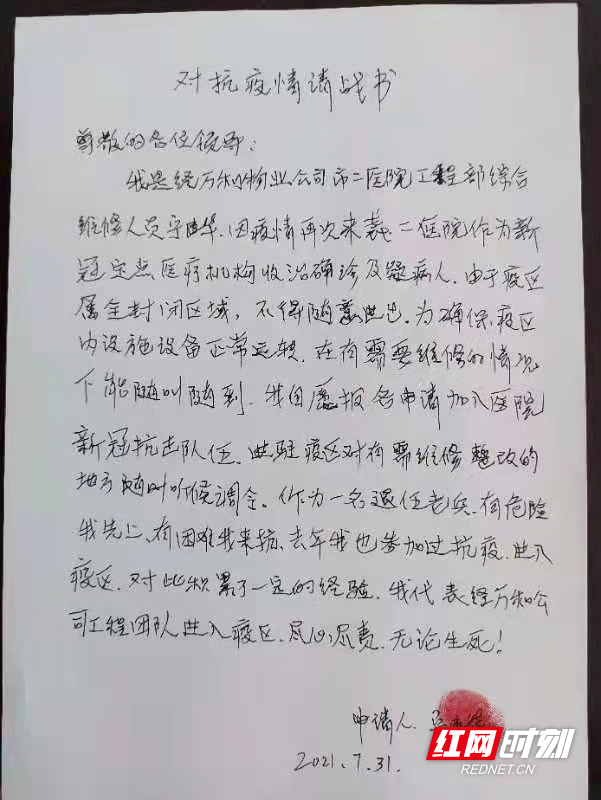 对抗疫情请战书
尊敬的各位领导：
我是经万和物业公司市二医院工程部综合
维修人员 因疫情再次来袭 二医院作为新
冠定点医疗机构收治确诊及疑病人. 由于疫区
属全封闭区域, 不得随意进出. 为确保疫区
内设施设备正常运转. 在有需要维修的情况
下能随叫随到. 我自愿报名申请加入医院
新冠抗击队伍. 进驻疫区对有需维修整改的
地方随时听候调令. 作为一名退伍老兵. 有危险
我先上、有困难我来抗、去年我也参加过抗疫. 进入
疫区. 对此积累了一定的经验. 我代表经万和公
司工程团队进入疫区. 尽心尽责. 无论生死!
申请人.
2021. 7. 31.
红网时刻
REDNET.CN